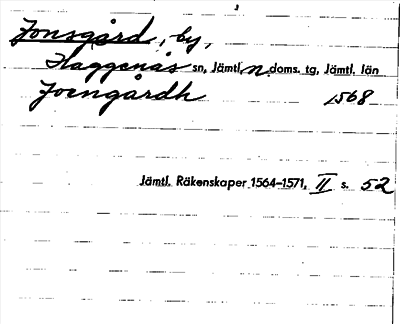 Jonsgård, by,
Häggenås sn, Jämtl. n. doms. tg, Jämtl. län
Joengårdh 1568
Jämtl. Räkenskaper 1564–1571, II s. 52